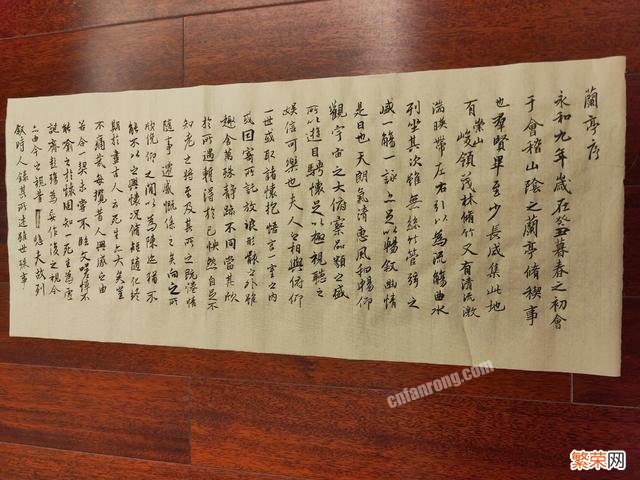 蘭亭序
永和九年歲在癸丑暮春之初會
于會稽山陰之蘭亭脩稧事
也群賢畢至少長咸集此地
有崇山峻領茂林脩竹又有清流激
湍暎帶左右引以為流觴曲水
列坐其次雖無絲竹管弦之
盛一觴一詠亦足以暢敘幽情
是日也天朗氣清惠風和暢仰
觀宇宙之大俯察品類之盛
所以遊目騁懷足以極視聽之
娛信可樂也夫人之相與俯仰
一世或取諸懷抱悟言一室之內
或因寄所託放浪形骸之外雖
趣舍萬殊靜躁不同當其欣
於所遇暫得於己怏然自足不
知老之將至及其所之既惓情
隨事遷感慨係之矣向之所
欣俛仰之間以為陳迹猶不
能不以之興懷況脩短隨化終
期於盡古人云死生亦大矣豈
不痛哉每攬昔人興感之由
若合一契未嘗不臨文嗟悼不
能喻之於懷固知一死生為虛
誕齊彭殤為妄作後之視今
亦由今之視昔悲夫故列
敘時人錄其所述雖世殊事
cnfanrong.com
繁荣网